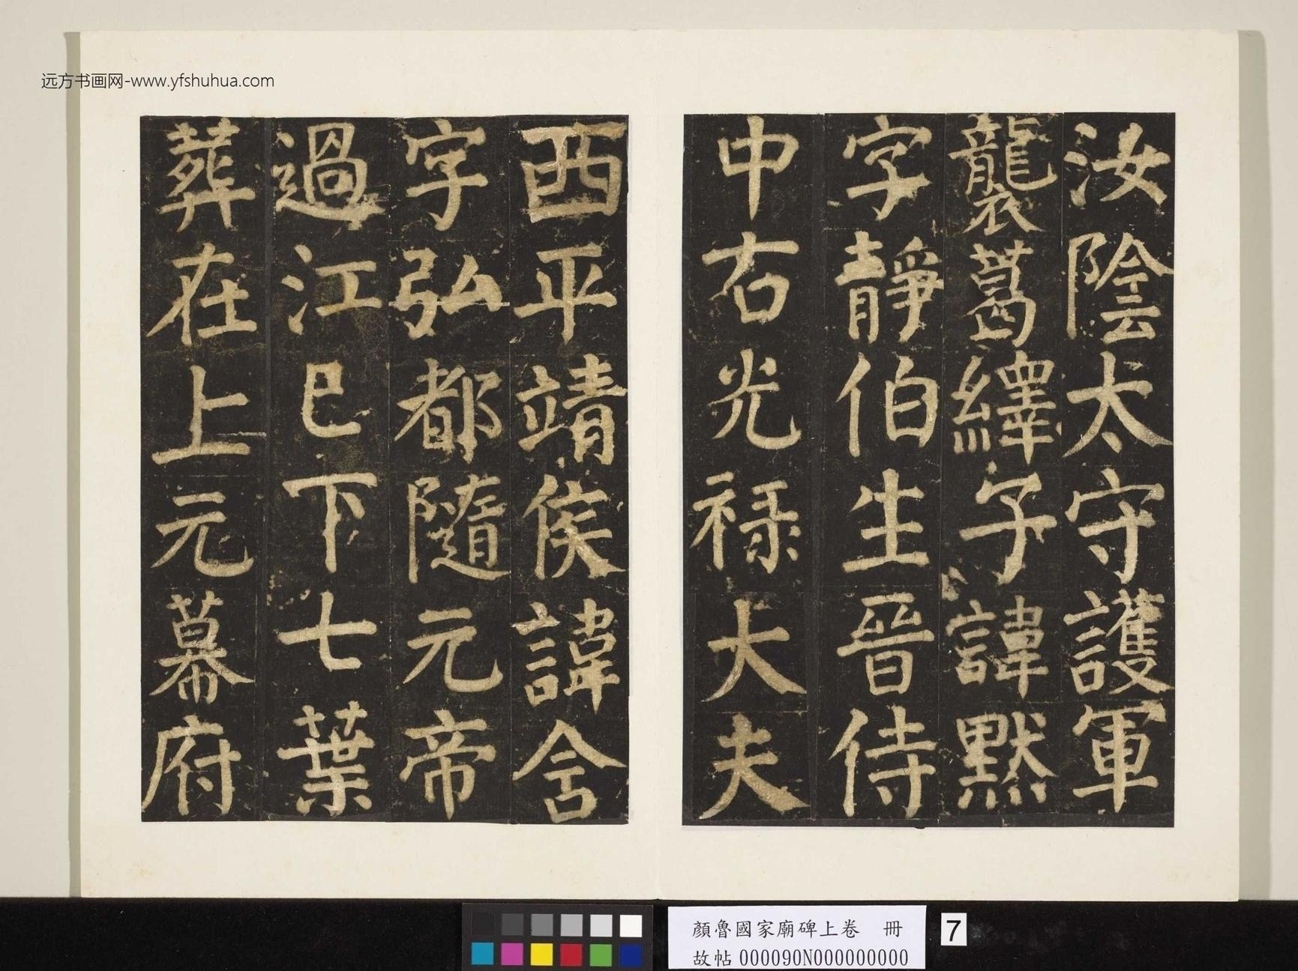 远方书画网-www.yfshuhua.com
汝陰太守護軍
襲葛繹子諱黙
字靜伯生晉侍
中右光禄大夫
西平靖侯諱含
字弘都隨元帝
過江已下七葉
葬在上元幕府
顏魯國家廟碑上卷 冊
故帖000090N000000000
7